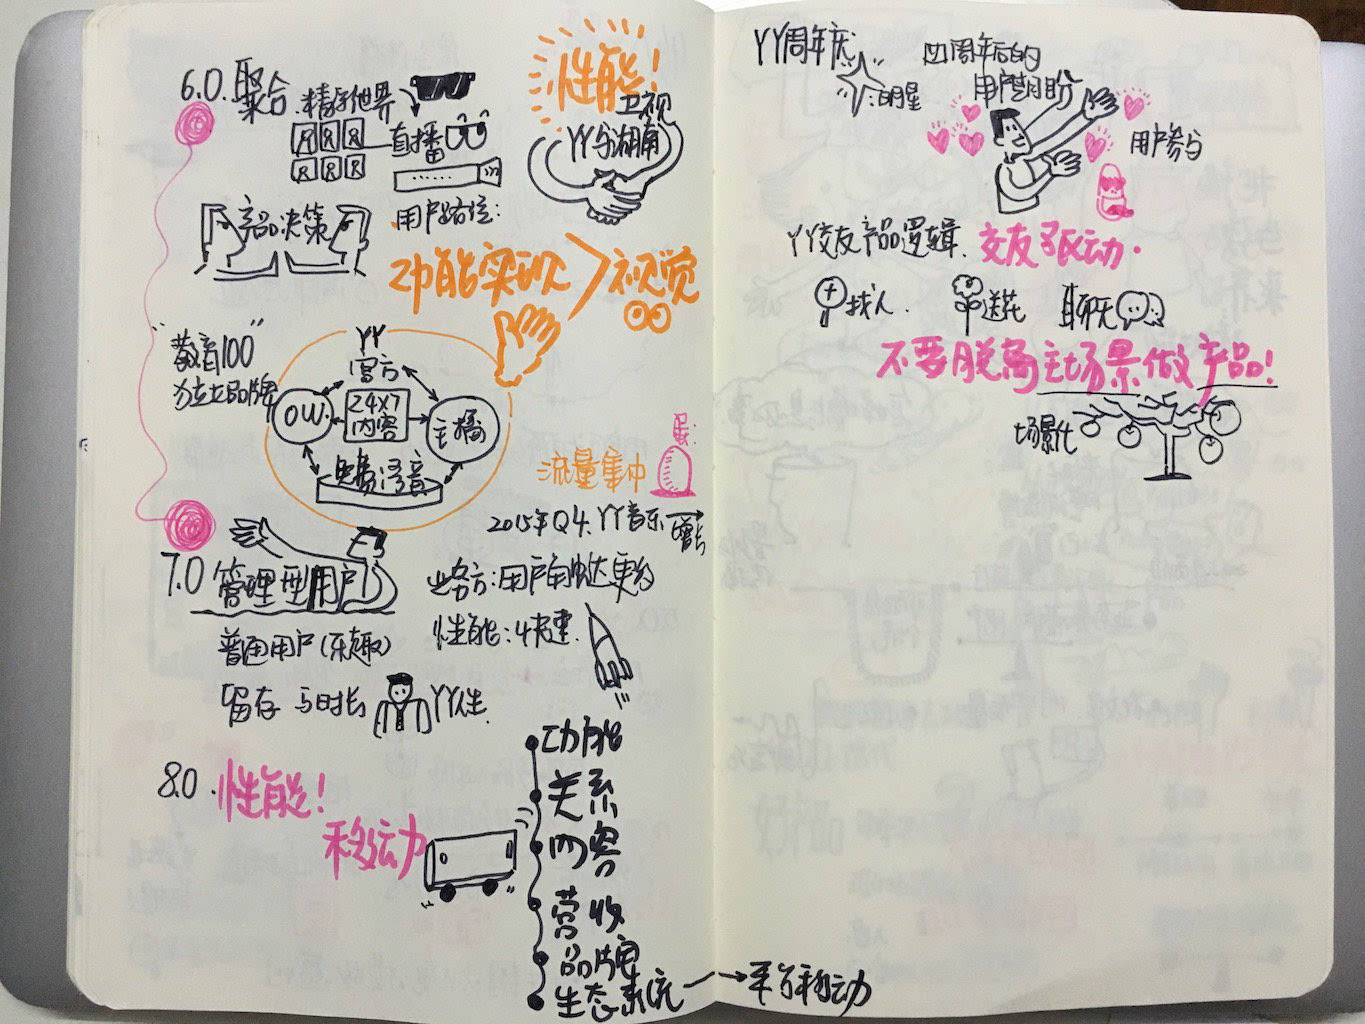 6.0. 聚合
精彩世界
直播
用户路径:
产品决策
性能!
卫视
YY与湖南
功能实现 > 视觉
"蒙音100"
独立品牌
YY
官方
OW
24X7
内容
主播
免费语音
流量集中
蛋:
2015年Q4. YY音乐
增长
7.0 管理型用户
业务方:用户
性能:快速.
普通用户(乐趣)
留存 与时长
YY人生
8.0. 性能!
移动
功能
关系
内容
营收
品牌
生态系统 → 平台移动
YY周年庆
:明星
四周年后的
用户
用户参与
YY交友产品逻辑. 交友驱动.
找人. 送花 聊天
不要脱离主场景做产品!
场景化